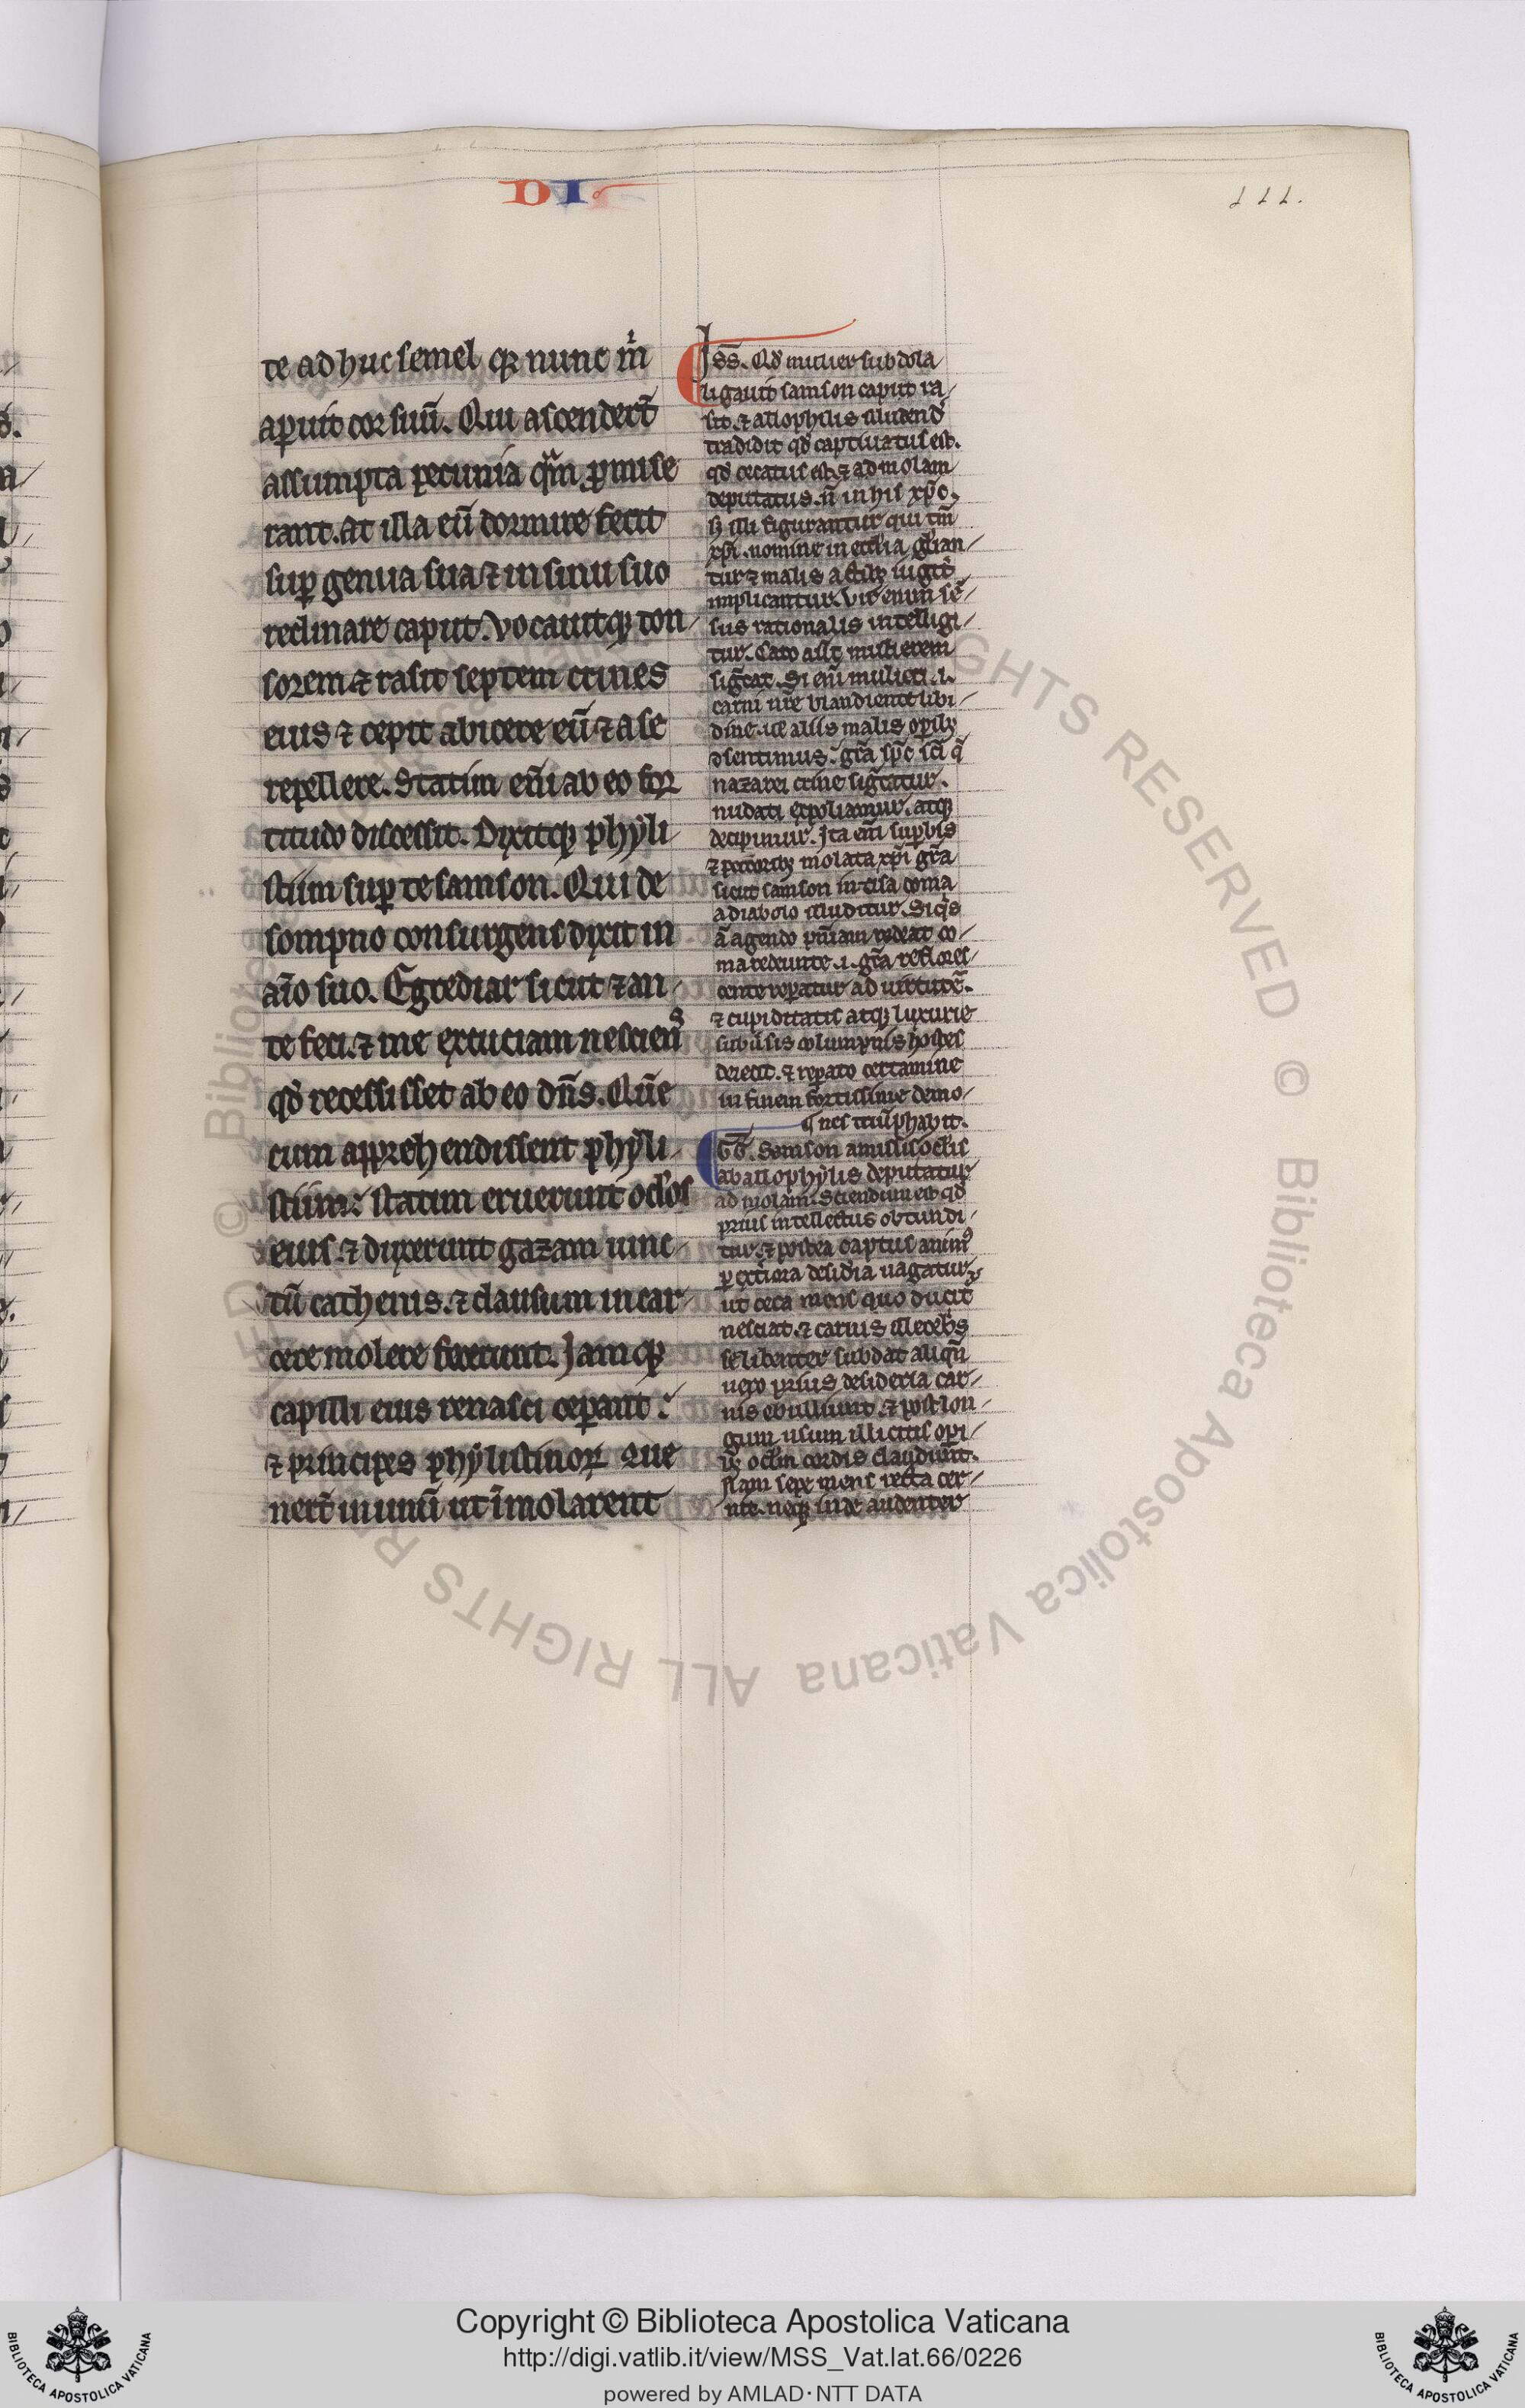 DI
111.
te adhuc semel qꝛ nunc m̊
aperuit cor suū. Qui ascender̄t
assumpta pecunia quā ꝓmise
rant. at illa eū dormire fecit
suꝑ genua sua ⁊ in sinu suo
reclinare caput. Vocauitqꝫ ton
sorem ⁊ rasit septem crines
eius ⁊ cepit abicere eū ⁊ a se
repellere. Statim em̄ ab eo for
titudo discessit. Dixitqꝫ phyli
stiim suꝑ te samson. Qui de
sompno consurgens dixit in
aīo suo. Egrediar sicut ⁊ an
te feci. ⁊ me excuciam nesciens
qd̓ recessisset ab eo dn̄s. Quē
cum apprehendissent phyli
stiim: statim eruerunt oc̄los
eius. ⁊ duxerunt gazam uinc
tū cathenis. ⁊ clausum in car
cere molere fecerunt. Iamqꝫ
capilli eius renasci ceperant:
⁊ principes phylistinoꝝ que
ner̄t in unū ut īmolarent
Iss. Qd̓ mulier subdola
ligauit samson caput ra
sit. ⁊ allophilis illudend̓
tradidit qd̓ captiuatus est.
qd̓ cecatus est ⁊ ad molam
deputatus. n̄ in his xp̄o.
sꝫ illi figurantur qui tm̄
xp̄i nomine in eccl̄ia gl̄ian
tur ⁊ malis actibꝫ iugit̓
implicantur. Vir enim sē
sus rationalis intelligi
tur. Caro aūt mulierem
sigc̄at. Si em̄ mulieri .i.
carni nr̄e blandienti libi
dine. uel aliis malis oꝑibꝫ
ɔsentimus: gr̄a sp̄c sc̄i q̄
nazarei crine sigc̄atur.
nudati expoliamur. atqꝫ
decipimur. Ita em̄ suꝑbis
⁊ peccatoribꝫ uiolata xp̄i gr̄a
sicut samson incisa coma
a diabolo illuditur. Siq̄s
aū agendo pn̄iam redeat co
ma redeunte .i. gr̄a reflores
cente reparatur ad uirtutē.
⁊ cupiditatis atqꝫ luxurie
subuersis columpnis hostes
deiecit. ⁊ reparato certamine
in finem fortissime demo
¶ nes triūphauit.
GG. Samson amissis oc̄lis
ab allophylis deputatur
ad molam. Sciendum est qd̓
prius intellectus obtundi
tur. ⁊ postea captus animꝰ
ꝑ exteriora desideria uagatur.
ut ceca mens quo ducit̓
nesciat. ⁊ carnis illecebris
se libenter subdat aliqn̄
uero prius desideria car
nis ebulliunt. ⁊ post lon
gum usum illicitis oꝑi
bꝫ oc̄lm cordis claudunt.
Nam sepe mens recta cer
nit. neqꝫ inde audenter
Copyright © Biblioteca Apostolica Vaticana
http://digi.vatlib.it/view/MSS_Vat.lat.66/0226
powered by AMLAD·NTT DATA